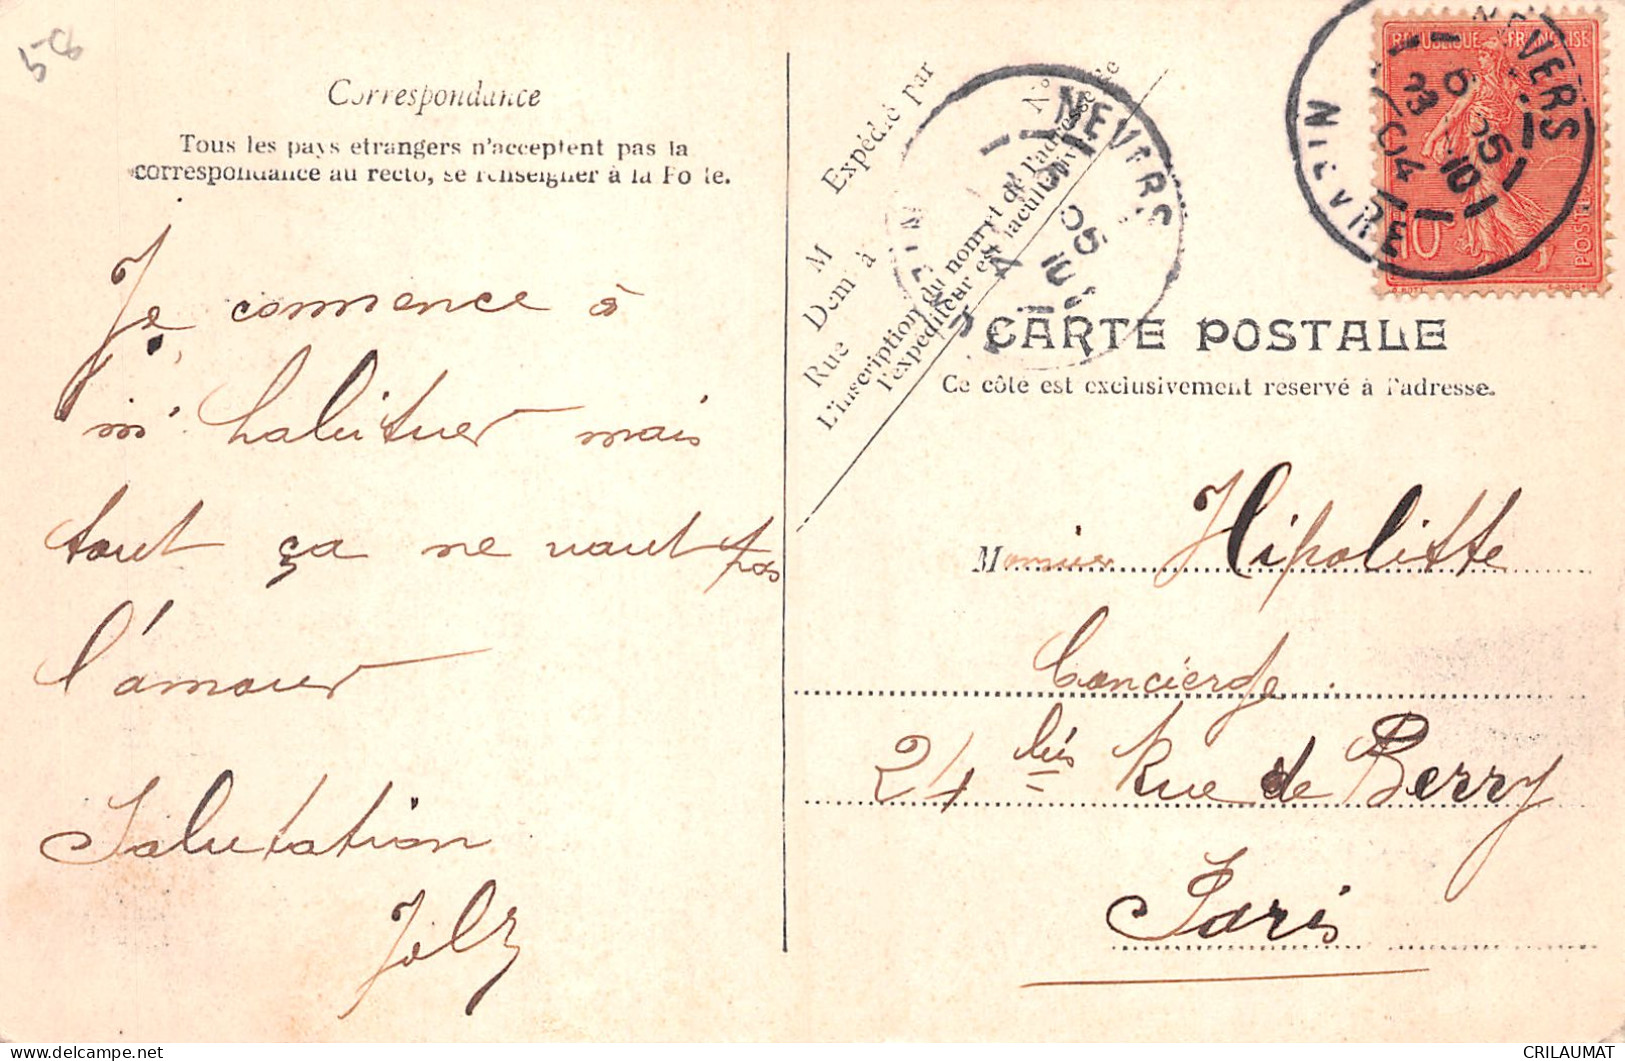 58
Correspondance
Tous les pays etrangers n'acceptent pas la
correspondance au recto, se renseigner à la Poste.
Je commence à
m'habituer mais
tout ça ne vaut pas
l'amour
Salutation
M Expédié par
Dem à
Rue N°
L'inscription du nom et de l'adresse de
l'expéditeur est facultative
NEVERS
NIEVRE
05
REPUBLIQUE FRANÇAISE
POSTES
10
NEVERS
10
05
NIEVRE
CARTE POSTALE
Ce côté est exclusivement reservé à l'adresse.
Monsieur Hipolitte
Concierge
24 bis Rue de Berry
Paris
CRILAUMAT